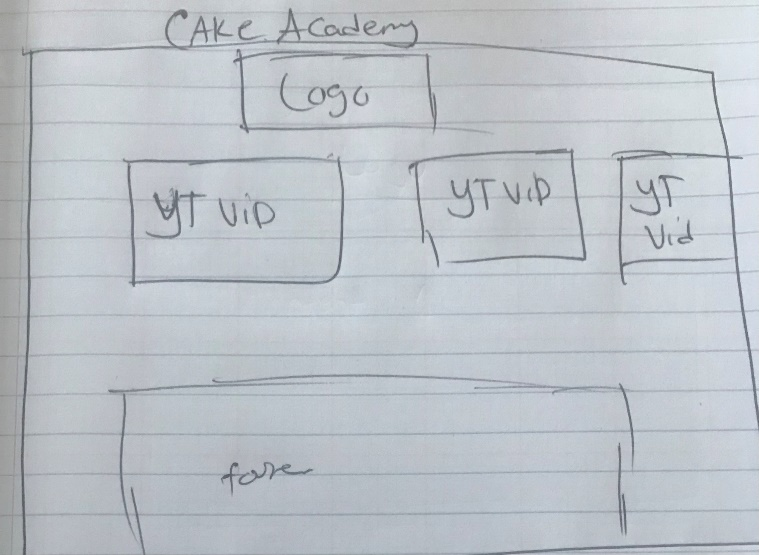 CAKE Academy
Logo
YT ViD
YT ViD
YT
Vid